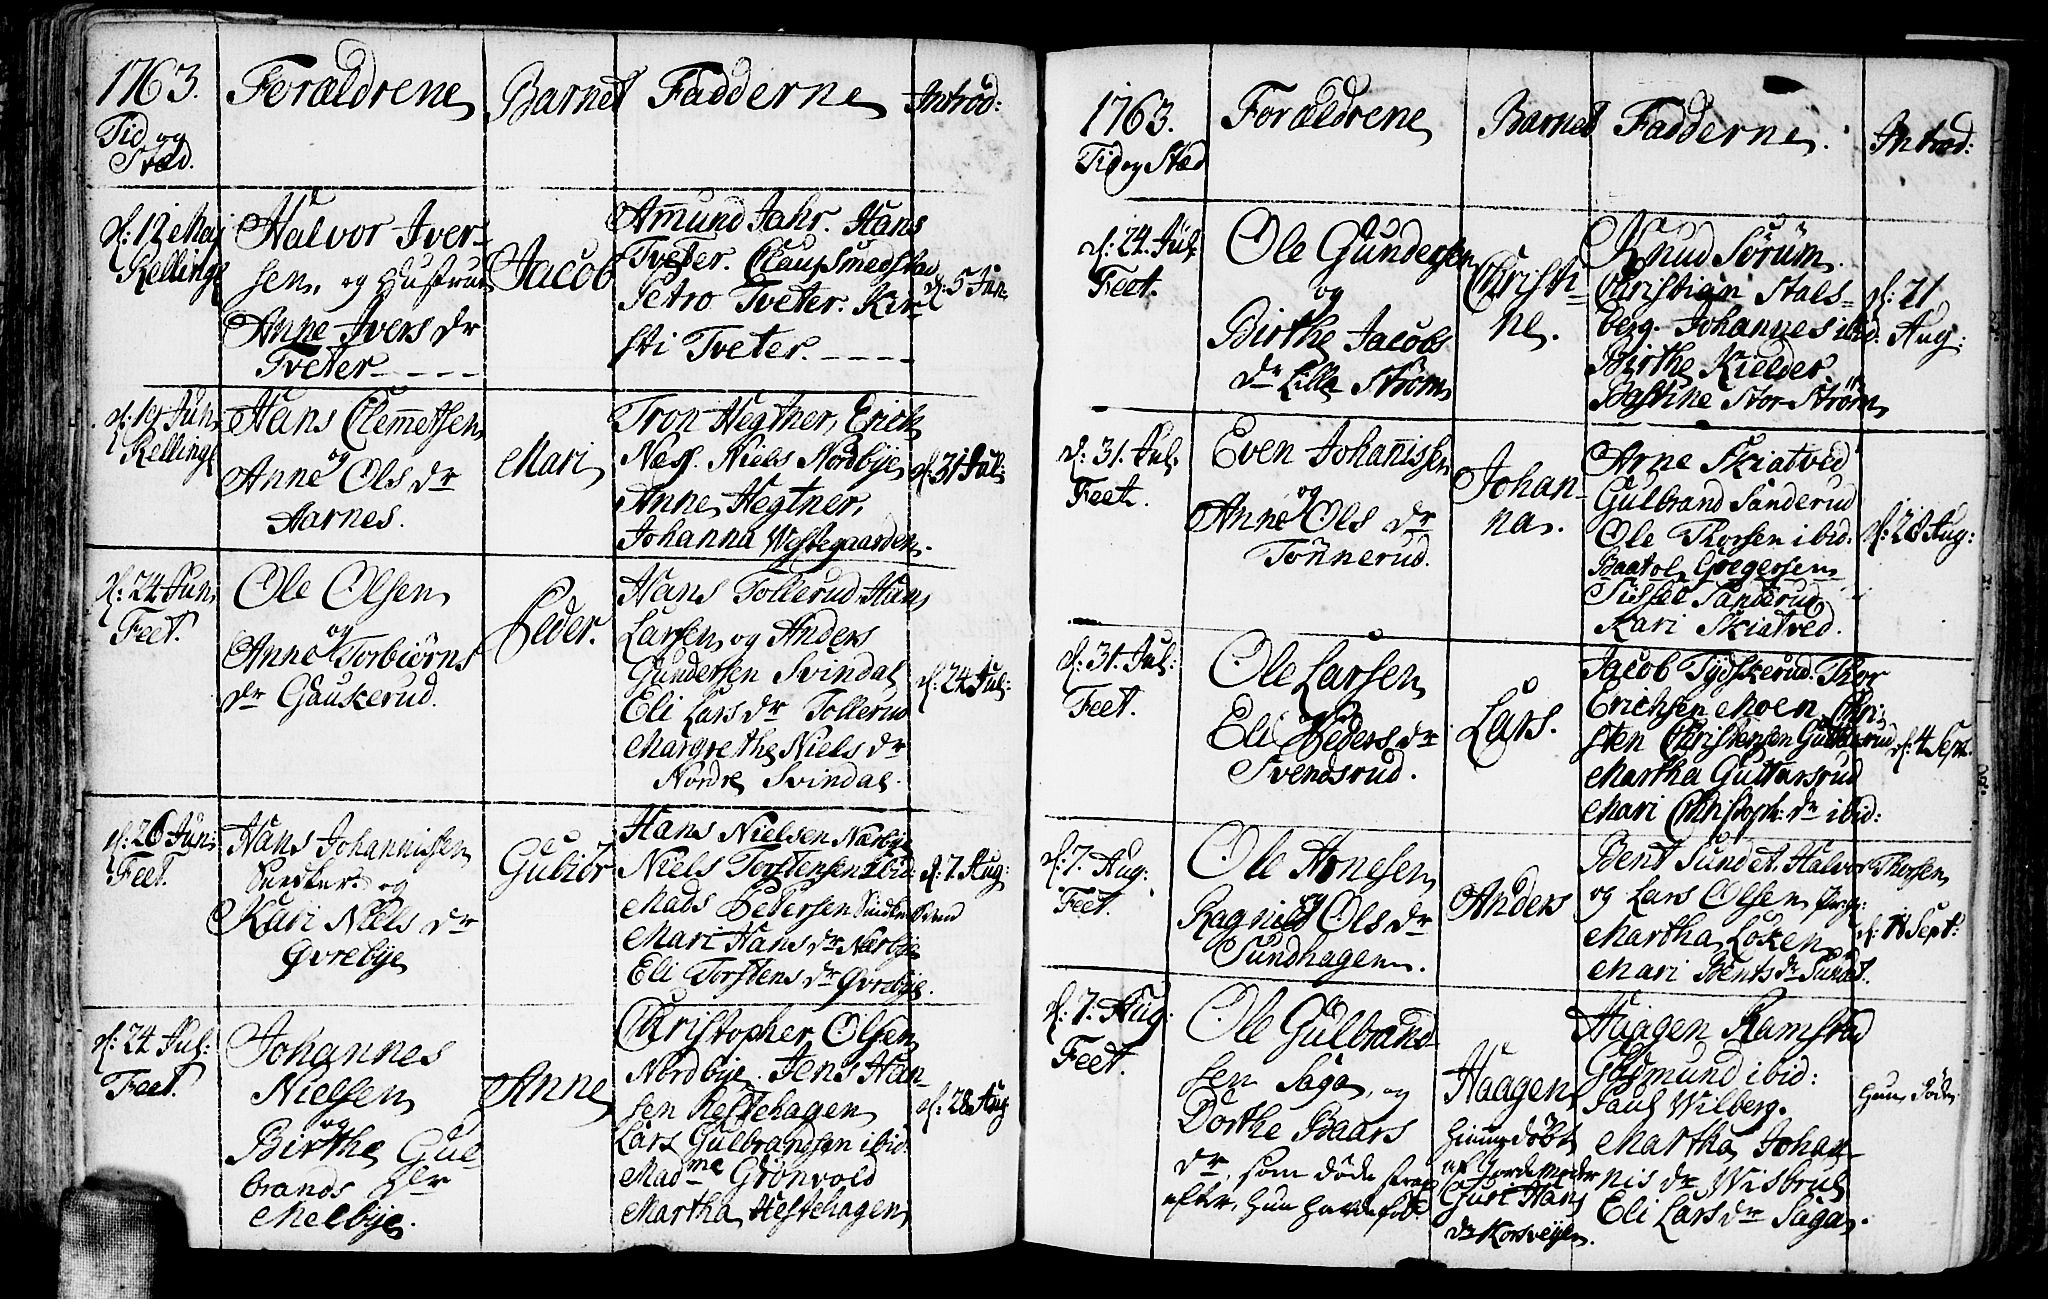 1763.
Tid og
Stæd.
Forældrene
Barnet
Fadderne
Introd:
d: 12 Maj
Kellinge
Halvor Iver-
sen, og Hustrue
Anne Ivers dr
Tveter
Jacob
Amund Jahr. Hans
Tveter. Claus Smedstad
Petro Tveter. Kir-
sti Tveter.
d: 5 Jun.
d: 19 Jun.
Kellinge
Hans Clemetsen
og
Anne Ols dr
Aarnes.
Mari
Tron Hegtner, Erich
Næss. Niels Nordbye
Anne Hegtner,
Johanna Westegaarden.
d: 31 Jul:
d: 24 Jun.
Feet.
Ole Olsen
og
Anne Torbiørns
dr Gaukerud.
Peder.
Hans Tollerud, Hans
Larsen og Anders
Gundersen Svindal
Eli Lars dr Tollerud
Margrethe Niels dr
Nordre Svindal.
d: 24 Jul:
d: 26 Jun.
Feet.
Hans Johannissen
og
Kari Niels dr
Øvrebye
Gubiør
Hans Nielsen Nærbye
Niels Torstensen ibid:
Mads Pedersen
Mari Hans dr Nærbye
Eli Torstens dr Øvrebye.
d: 7. Aug:
d: 24 Jul:
Feet.
Johannes
Nielsen
og
Birthe Gul-
brands dr
Melbye.
Anne
Christopher Olsen
Nordbye. Jens Han-
sen Hestehagen
Lars Gulbrandsen ibid:
Madme Grønvold
Martha Hestehagen
d: 28 Aug
1763.
Tid og Stæd
Forældrene
Barnet
Fadderne.
Introd:
d: 24. Jul.
Feet.
Ole Gundersen
og
Birthe Jacobs
dr Lille Strøm
Christi-
ne.
Knud Sørum.
Christian Stals-
berg. Johannes ibid.
Birthe Kielder.
Bastine Stor-Strøm
d: 21
Aug:
d: 31. Jul.
Feet.
Even Johanissen
og
Anne Ols dr
Tønnerud.
Johan-
na.
Arne Skiatved
Gulbrand Sanderud
Ole Thorsen ibid.
Baatol Gregersen
Sissel Sanderud
Kari Skiatved.
d: 28 Aug:
d: 31. Jul:
Feet.
Ole Larsen
og
Eli Peders dr
Svendsrud.
Lars.
Jacob Tydskerud. Thor
Erichsen Moen Chri-
sten Christensen Guttersrud
Martha Guttersrud
Mari Christoph: dr ibid:
d: 4 Sept.
d: 7. Aug:
Feet.
Ole Arnesen
og
Ragnild Ols dr
Sundhagen.
Anders
Bent Sundet. Halvor Thorsen
og Lars Olsen
Martha Løken
Mari Bents dr Sundet.
d: 18 Sept:
d: 7. Aug:
Feet.
Ole Gulbrand-
sen Saga, og
Dorthe Baars
dr, som døde strax
efter, hun hafde fød.
Haagen
hiemmedøbt
af Jordemoder
Guri Hans
dr Korsveyen.
Haagen Ramstad
Gudmund ibid:
Paul Wilberg.
Martha Johan-
nis dr Wisbrud
Eli Lars dr Saga.
hun døde